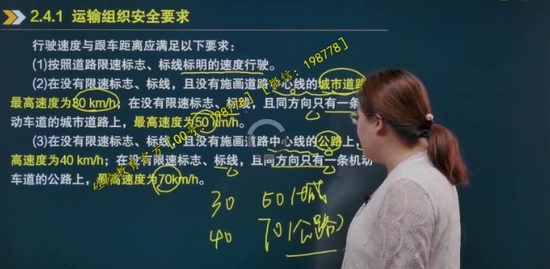 2.4.1 运输组织安全要求
行驶速度与跟车距离应满足以下要求：
(1)按照道路限速标志、标线标明的速度行驶。
(2)在没有限速标志、标线，且没有施画道路中心线的城市道路
最高速度为 km/h；在没有限速标志、标线，且同方向只有一条
动车道的城市道路上，最高速度为50 km/h。
(3)在没有限速标志、标线，且没有施画道路中心线的公路上，
高速度为40 km/h；在没有限速标志、标线，且同方向只有一条机动
车道的公路上，最高速度为70km/h。
30 50(城
40 70(公路)
微信：198778】